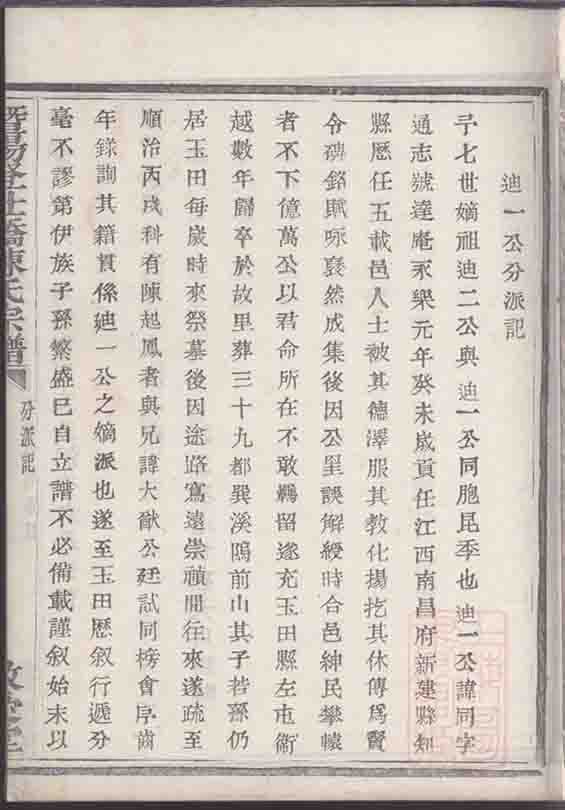 迪一公分派記
予七世嫡祖迪二公與迪一公同胞昆季也迪一公諱同字
通志號達庵永樂元年癸未歲貢任江西南昌府新建縣知
縣歷任五載邑人士被其德澤服其教化揚扢其休傳為賢
令碑銘賦咏裒然成集後因公罣誤解綬時合邑紳民攀轅
者不下億萬公以君命所在不敢羈留遂充玉田縣左屯衛
越數年歸卒於故里葬三十九都巽溪隖前山其子若孫仍
居玉田每歲時來祭墓後因途路寫遠崇禎間往來遂疏至
順治丙戌科有陳起鳳者與兄諱大猷公廷試同榜會序齒
年錄詢其籍貫係迪一公之嫡派也遂至玉田歷叙行遞分
毫不謬第伊族子孫繁盛已自立譜不必備載謹叙始末以
陳氏宗譜
分派記